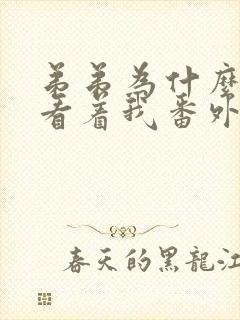 弟弟為什麼
看着我番外
春天的黑龍江